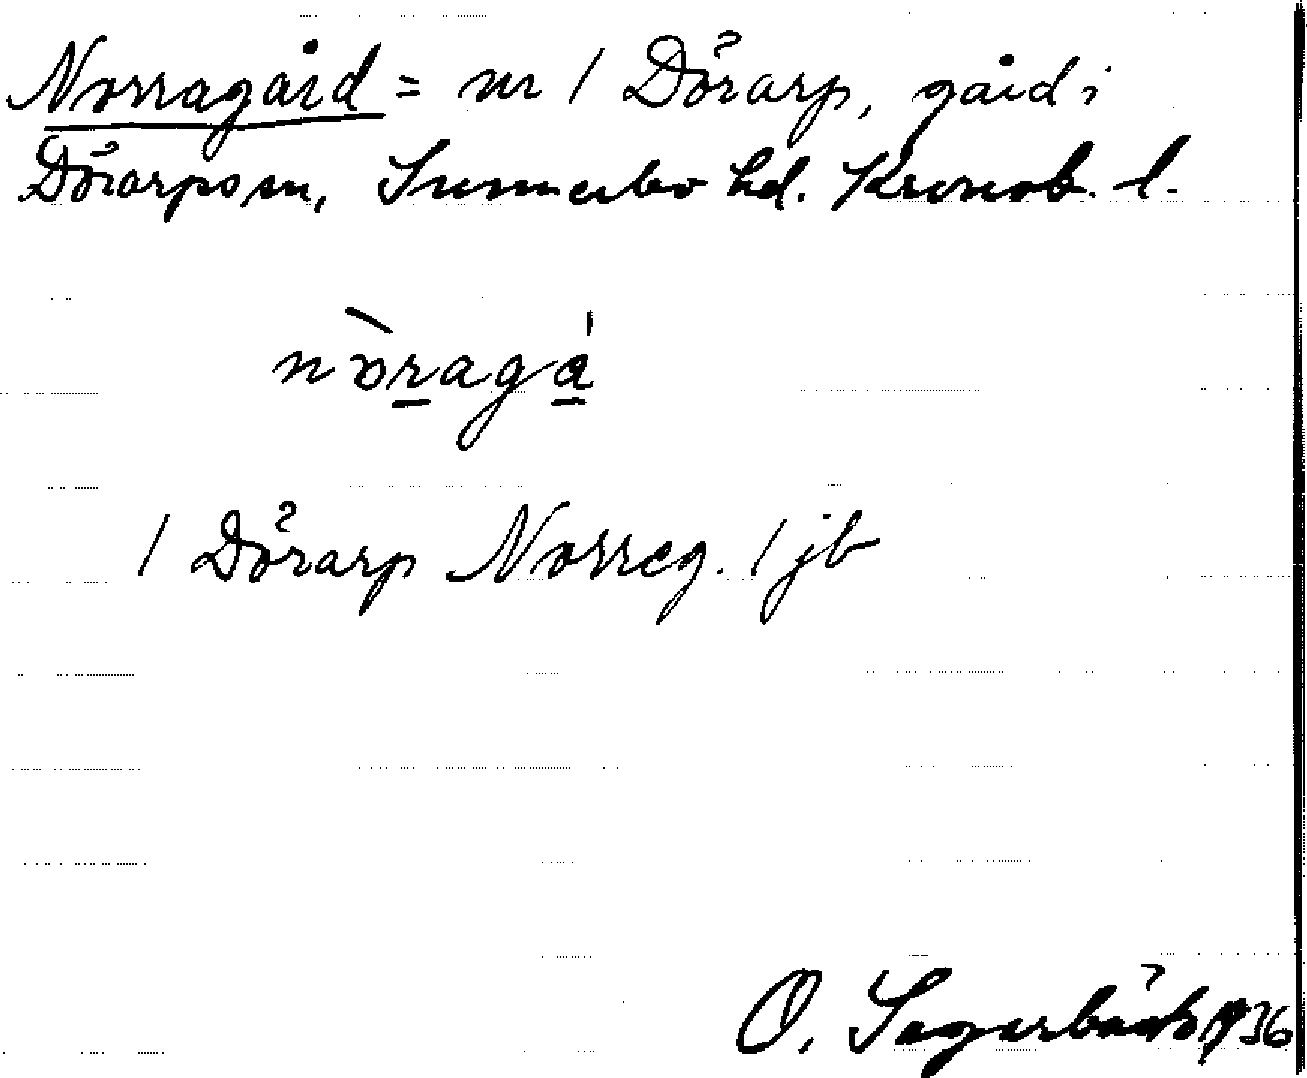 Norragård = nr 1 Dörarp, gård i
Dörarps sn, Sunnerbo hd. Kronob. l.
nòragá
1 Dörarp Norreg. 1 jb
O. 1936